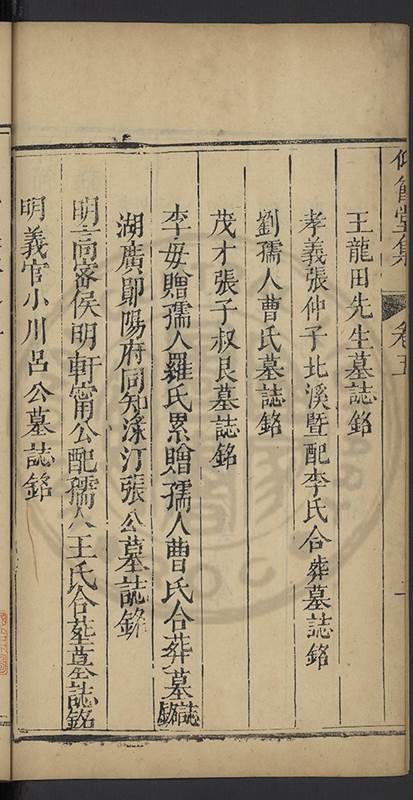 仰節堂集
卷五
王龍田先生墓誌銘
孝義張仲子北溪暨配李氏合葬墓誌銘
劉孺人曹氏墓誌銘
茂才張子叔艮墓誌銘
李母贈孺人羅氏累贈孺人曹氏合葬墓誌銘
湖廣鄖陽府同知涤汀張公墓誌銘
明高密侯明軒甯公配孺人王氏合葬墓誌銘
明義官小川呂公墓誌銘